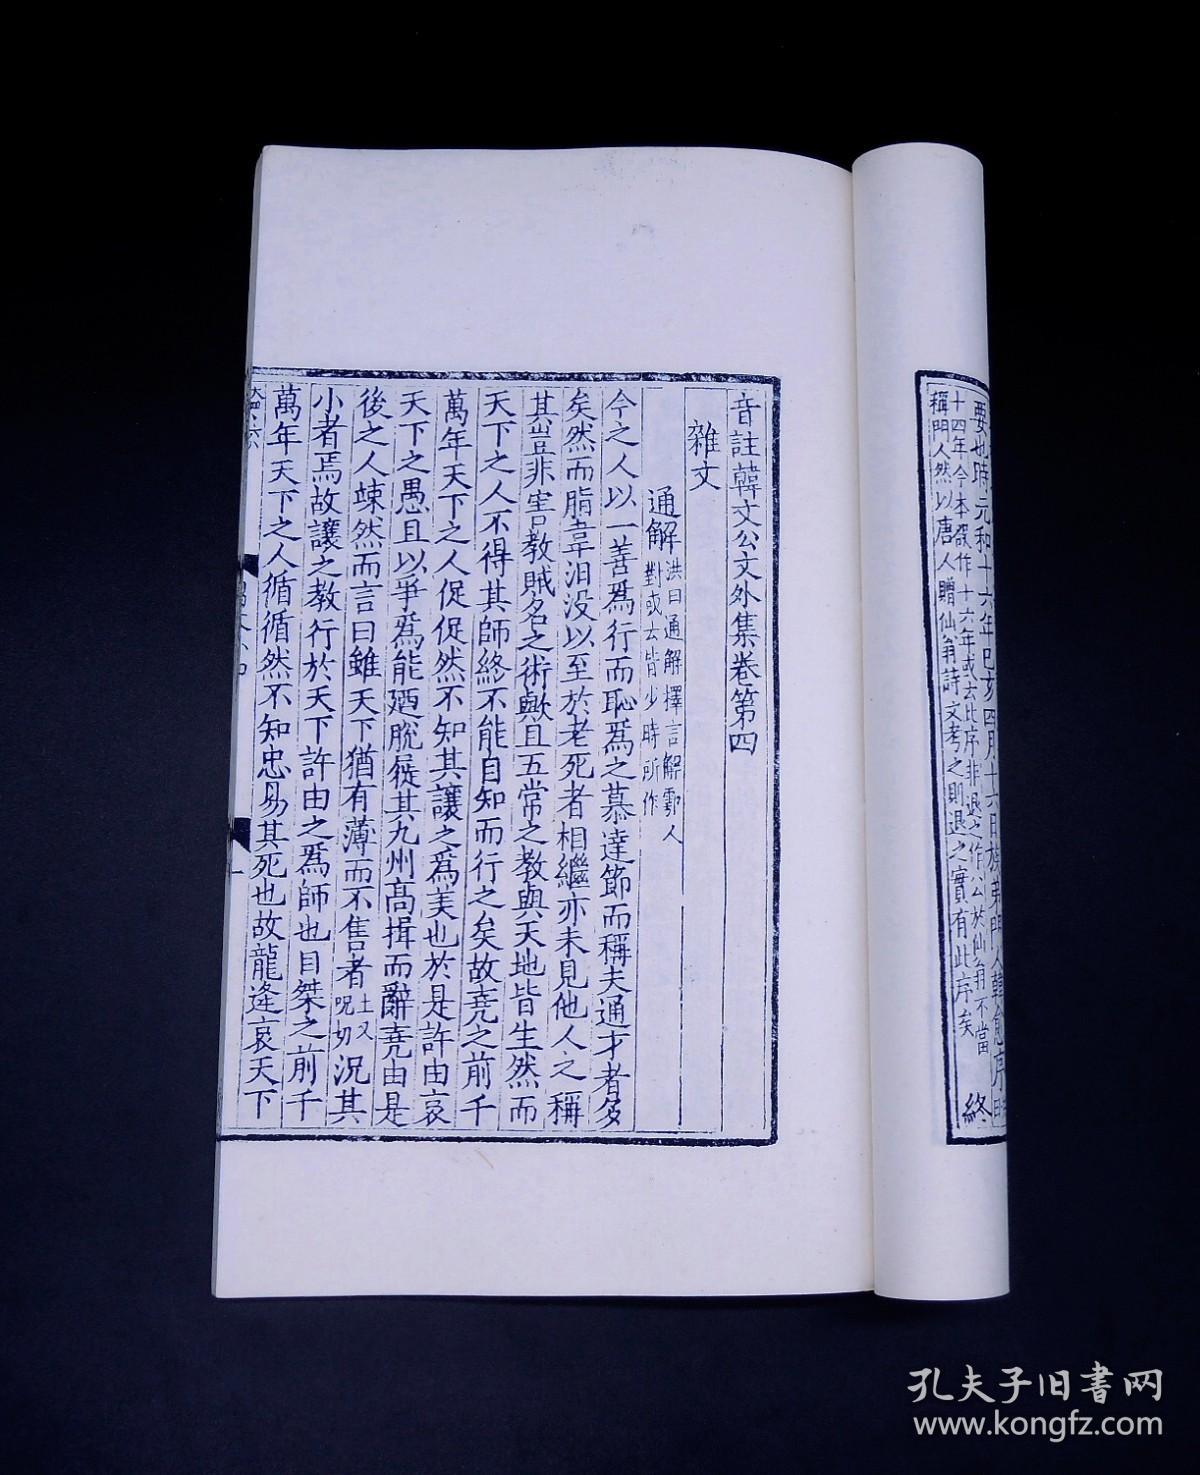 要也時元和十六年巳亥四月十六日族弟門人韓愈序
十四年今本誤作十六年或云此序非退之作公於仙翁不當
稱門人然以唐人贈仙翁詩文考之則退之實有此序矣
終
音註韓文公文外集卷第四
雜文
通解 洪曰通解擇言解鄠人
對或云皆少時所作
今之人以一善爲行而恥爲之慕達節而稱夫通才者多
矣然而脂韋汨没以至於老死者相繼亦未見他人之稱
其豈非害教賊名之術歟且五常之教與天地皆生然而
天下之人不得其師終不能自知而行之矣故堯之前千
萬年天下之人促促然不知其讓之爲美也於是許由哀
天下之愚且以爭爲能廼脫屣其九州高揖而辭堯由是
後之人竦然而言曰雖天下猶有薄而不售者土又呪切况其
小者焉故讓之教行於天下許由之爲師也自桀之前千
萬年天下之人循循然不知忠易其死也故龍逄哀天下
孔夫子旧書网
www.kongfz.com